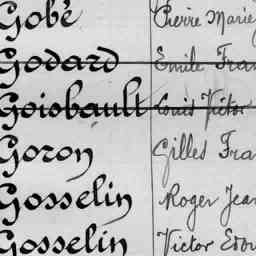 Gobé Pierre Marie
Godard Emile Fran
Goisbault Louis Victor
Goron Gilles Fra
Gosselin Roger Jean
Gosselin Victor Edou